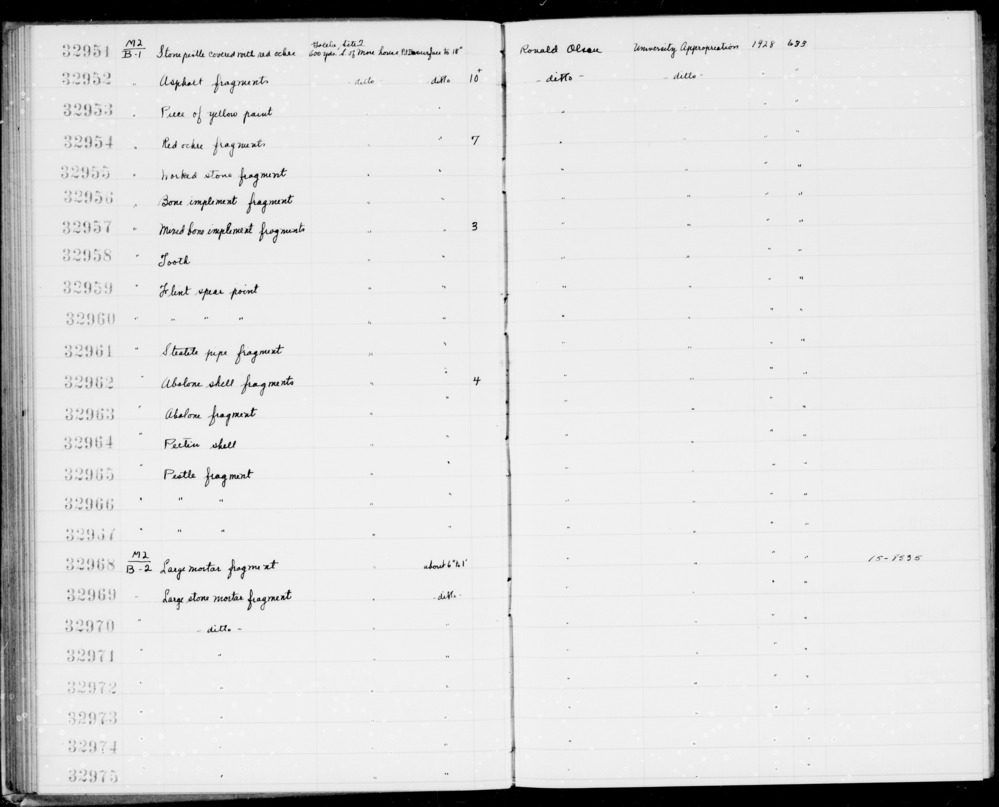 32951 M2/B-1 Stone pestle covered with red ochre Goleta, Site 2 600 yds. S. of More house Pit B surface to 18" Ronald Olson University Appropriation 1928 633
32952 " Asphalt fragments - ditto - ditto 10+ - ditto - - ditto - " "
32953 " Piece of yellow paint " " " " " "
32954 " Red ochre fragments " " 7 " " " "
32955 " Worked stone fragment " " " " " "
32956 " Bone implement fragment " " " " " "
32957 " Mixed bone implement fragments " " 3 " " " "
32958 " Tooth " " " " " "
32959 " Flint spear point " " " " " "
32960 " " " " " " " " " "
32961 " Steatite pipe fragment " " " " " "
32962 " Abalone shell fragments " " 4 " " " "
32963 " Abalone fragment " " " " " "
32964 " Pectin shell " " " " " "
32965 " Pestle fragment " " " " " "
32966 " " " " " " " " "
32967 " " " " " " " " "
32968 M2/B-2 Large mortar fragment " about 6" to 1' " " " " 15-8535
32969 " Large stone mortar fragment " - ditto - " " " "
32970 " - ditto - " " " " " "
32971 " " " " " " " "
32972 " " " " " " " "
32973 " " " " " " " "
32974 " " " " " " " "
32975 " " " " " " " "